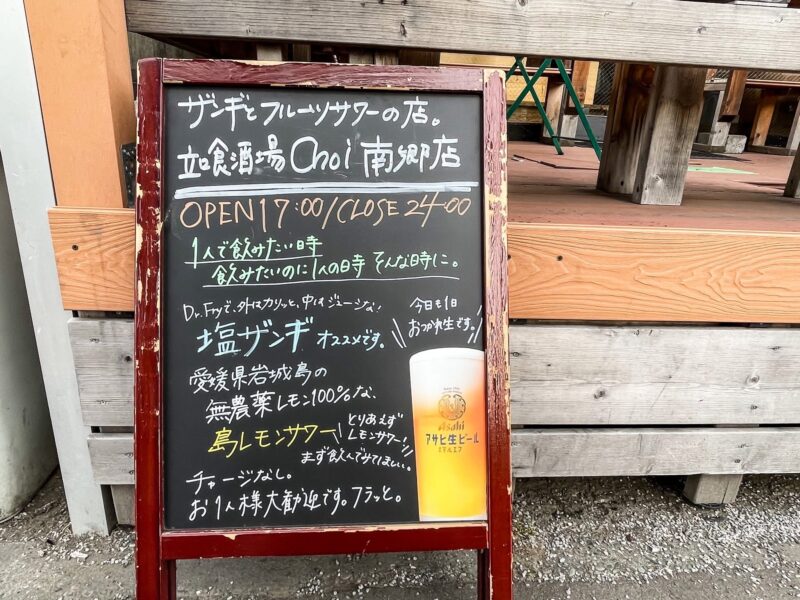 ザンギとフルーツサワーの店。
立食酒場Choi 南郷店
OPEN17:00/CLOSE24:00
1人で飲みたい時
飲みたいのに1人の時 そんな時に。
Dr.Fryで、外はカリッと、中はジューシーな、
塩ザンギ オススメです。
今日も1日
おつかれ生です。
愛媛県岩城島の
無農薬レモン100%な、
島レモンサワー
とりあえず
レモンサワー!
まず飲んでみてほしい。
チャージなし。
お1人様大歓迎です。フラッと。
Asahi
アサヒ生ビール